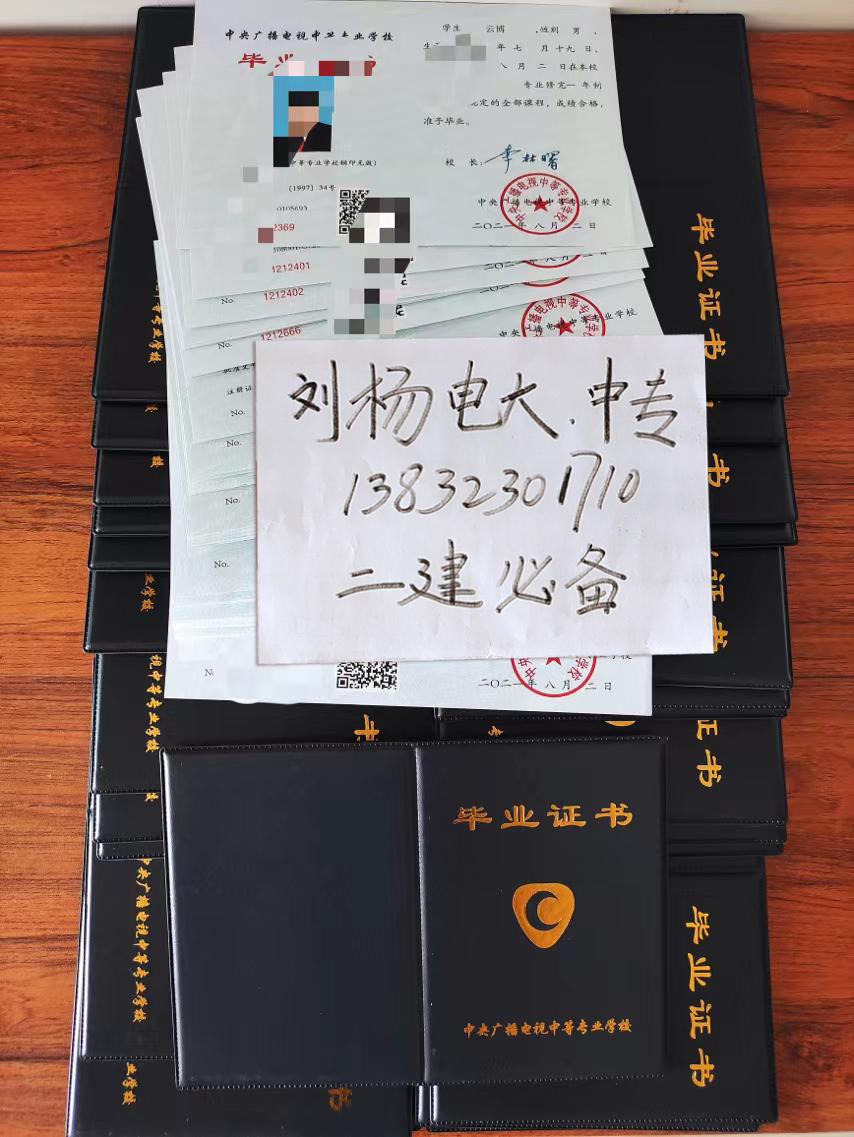 中央广播电视中等专业学校
毕业证书
学生 云博 ,性别 男,
年 七 月 十九 日,
八 月 二 日在本校
专业修完一年制
定的全部课程,成绩合格,
准予毕业。
校 长:
中等专业学校钢印无效)
[1997] 34号
0105693
2369
中央广播电视中等专业学校
二〇二一年 八 月 二 日
1212401
No. 1212402
No. 1212666
中央广播电视中等专业学校
注册证
No.
No.
No.
No.
刘杨电大.中专
13832301710
二建必备
二〇二一年 八 月 二 日
毕业证书
中央广播电视中等专业学校
毕业证书
毕业证书
中央广播电视中等专业学校